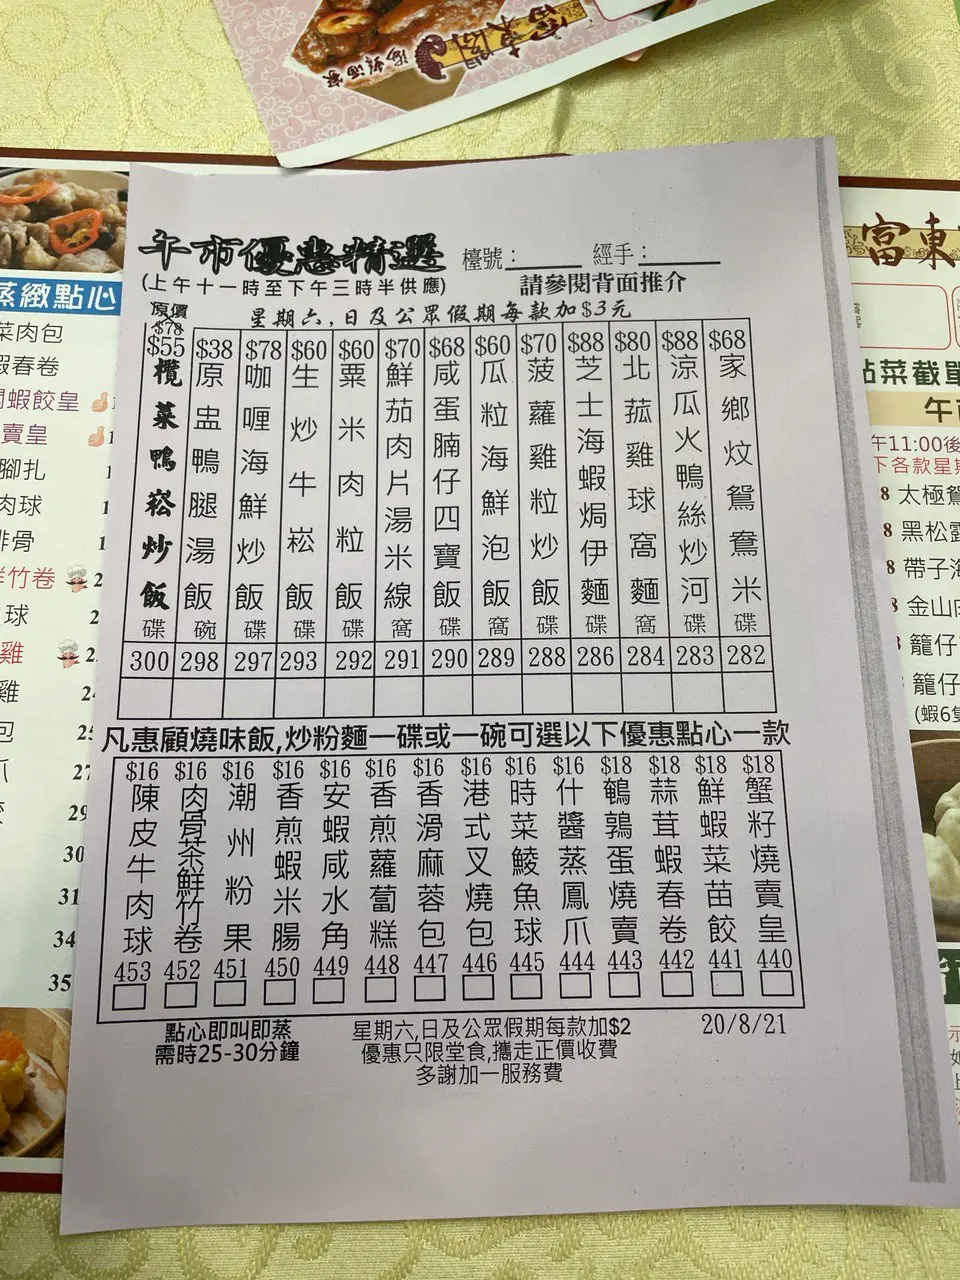 富東閣
海鮮酒家
午市優惠精選
檯號：
經手：
(上午十一時至下午三時半供應)
請參閱背面推介
星期六,日及公眾假期每款加$3元
原價
$78
$55 欖菜鴨崧炒飯 碟 300
$38 原盅鴨腿湯飯 碗 298
$78 咖喱海鮮炒飯 碟 297
$60 生炒牛崧飯 碟 293
$60 粟米肉粒飯 碟 292
$70 鮮茄肉片湯米線 窩 291
$68 咸蛋腩仔四寶飯 碟 290
$60 瓜粒海鮮泡飯 窩 289
$70 菠蘿雞粒炒飯 碟 288
$88 芝士海蝦焗伊麵 碟 286
$80 北菰雞球窩麵 窩 284
$88 涼瓜火鴨絲炒河 碟 283
$68 家鄉炆鴛鴦米 碟 282
凡惠顧燒味飯,炒粉麵一碟或一碗可選以下優惠點心一款
$16 陳皮牛肉球 453
$16 肉骨茶鮮竹卷 452
$16 潮州粉果 451
$16 香煎蝦米腸 450
$16 安蝦咸水角 449
$16 香煎蘿蔔糕 448
$16 香滑麻蓉包 447
$16 港式叉燒包 446
$16 時菜鯪魚球 445
$16 什醬蒸鳳爪 444
$18 鵪鶉蛋燒賣 443
$18 蒜茸蝦春卷 442
$18 鮮蝦菜苗餃 441
$18 蟹籽燒賣皇 440
點心即叫即蒸
需時25-30分鐘
星期六,日及公眾假期每款加$2
優惠只限堂食,攜走正價收費
多謝加一服務費
20/8/21
蒸緻點心
菜肉包
蝦春卷
蝦餃皇
賣皇
腳扎
肉球
排骨
竹卷
球
雞
雞
包
爪
27
29
30
31
34
35
富東
點菜截單
午
午11:00後
下各款星期
8 太極鴛
8 黑松露
8 帶子海
8 金山
籠仔
籠仔
(蝦6隻